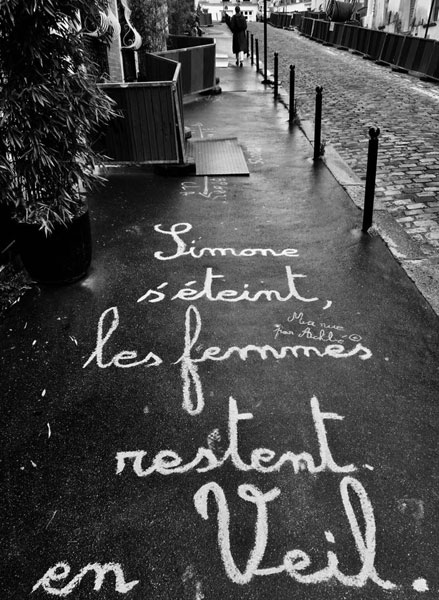 Simone
s'éteint,
les femmes
restent.
en Veil.
Ma rue
par Achbé ©